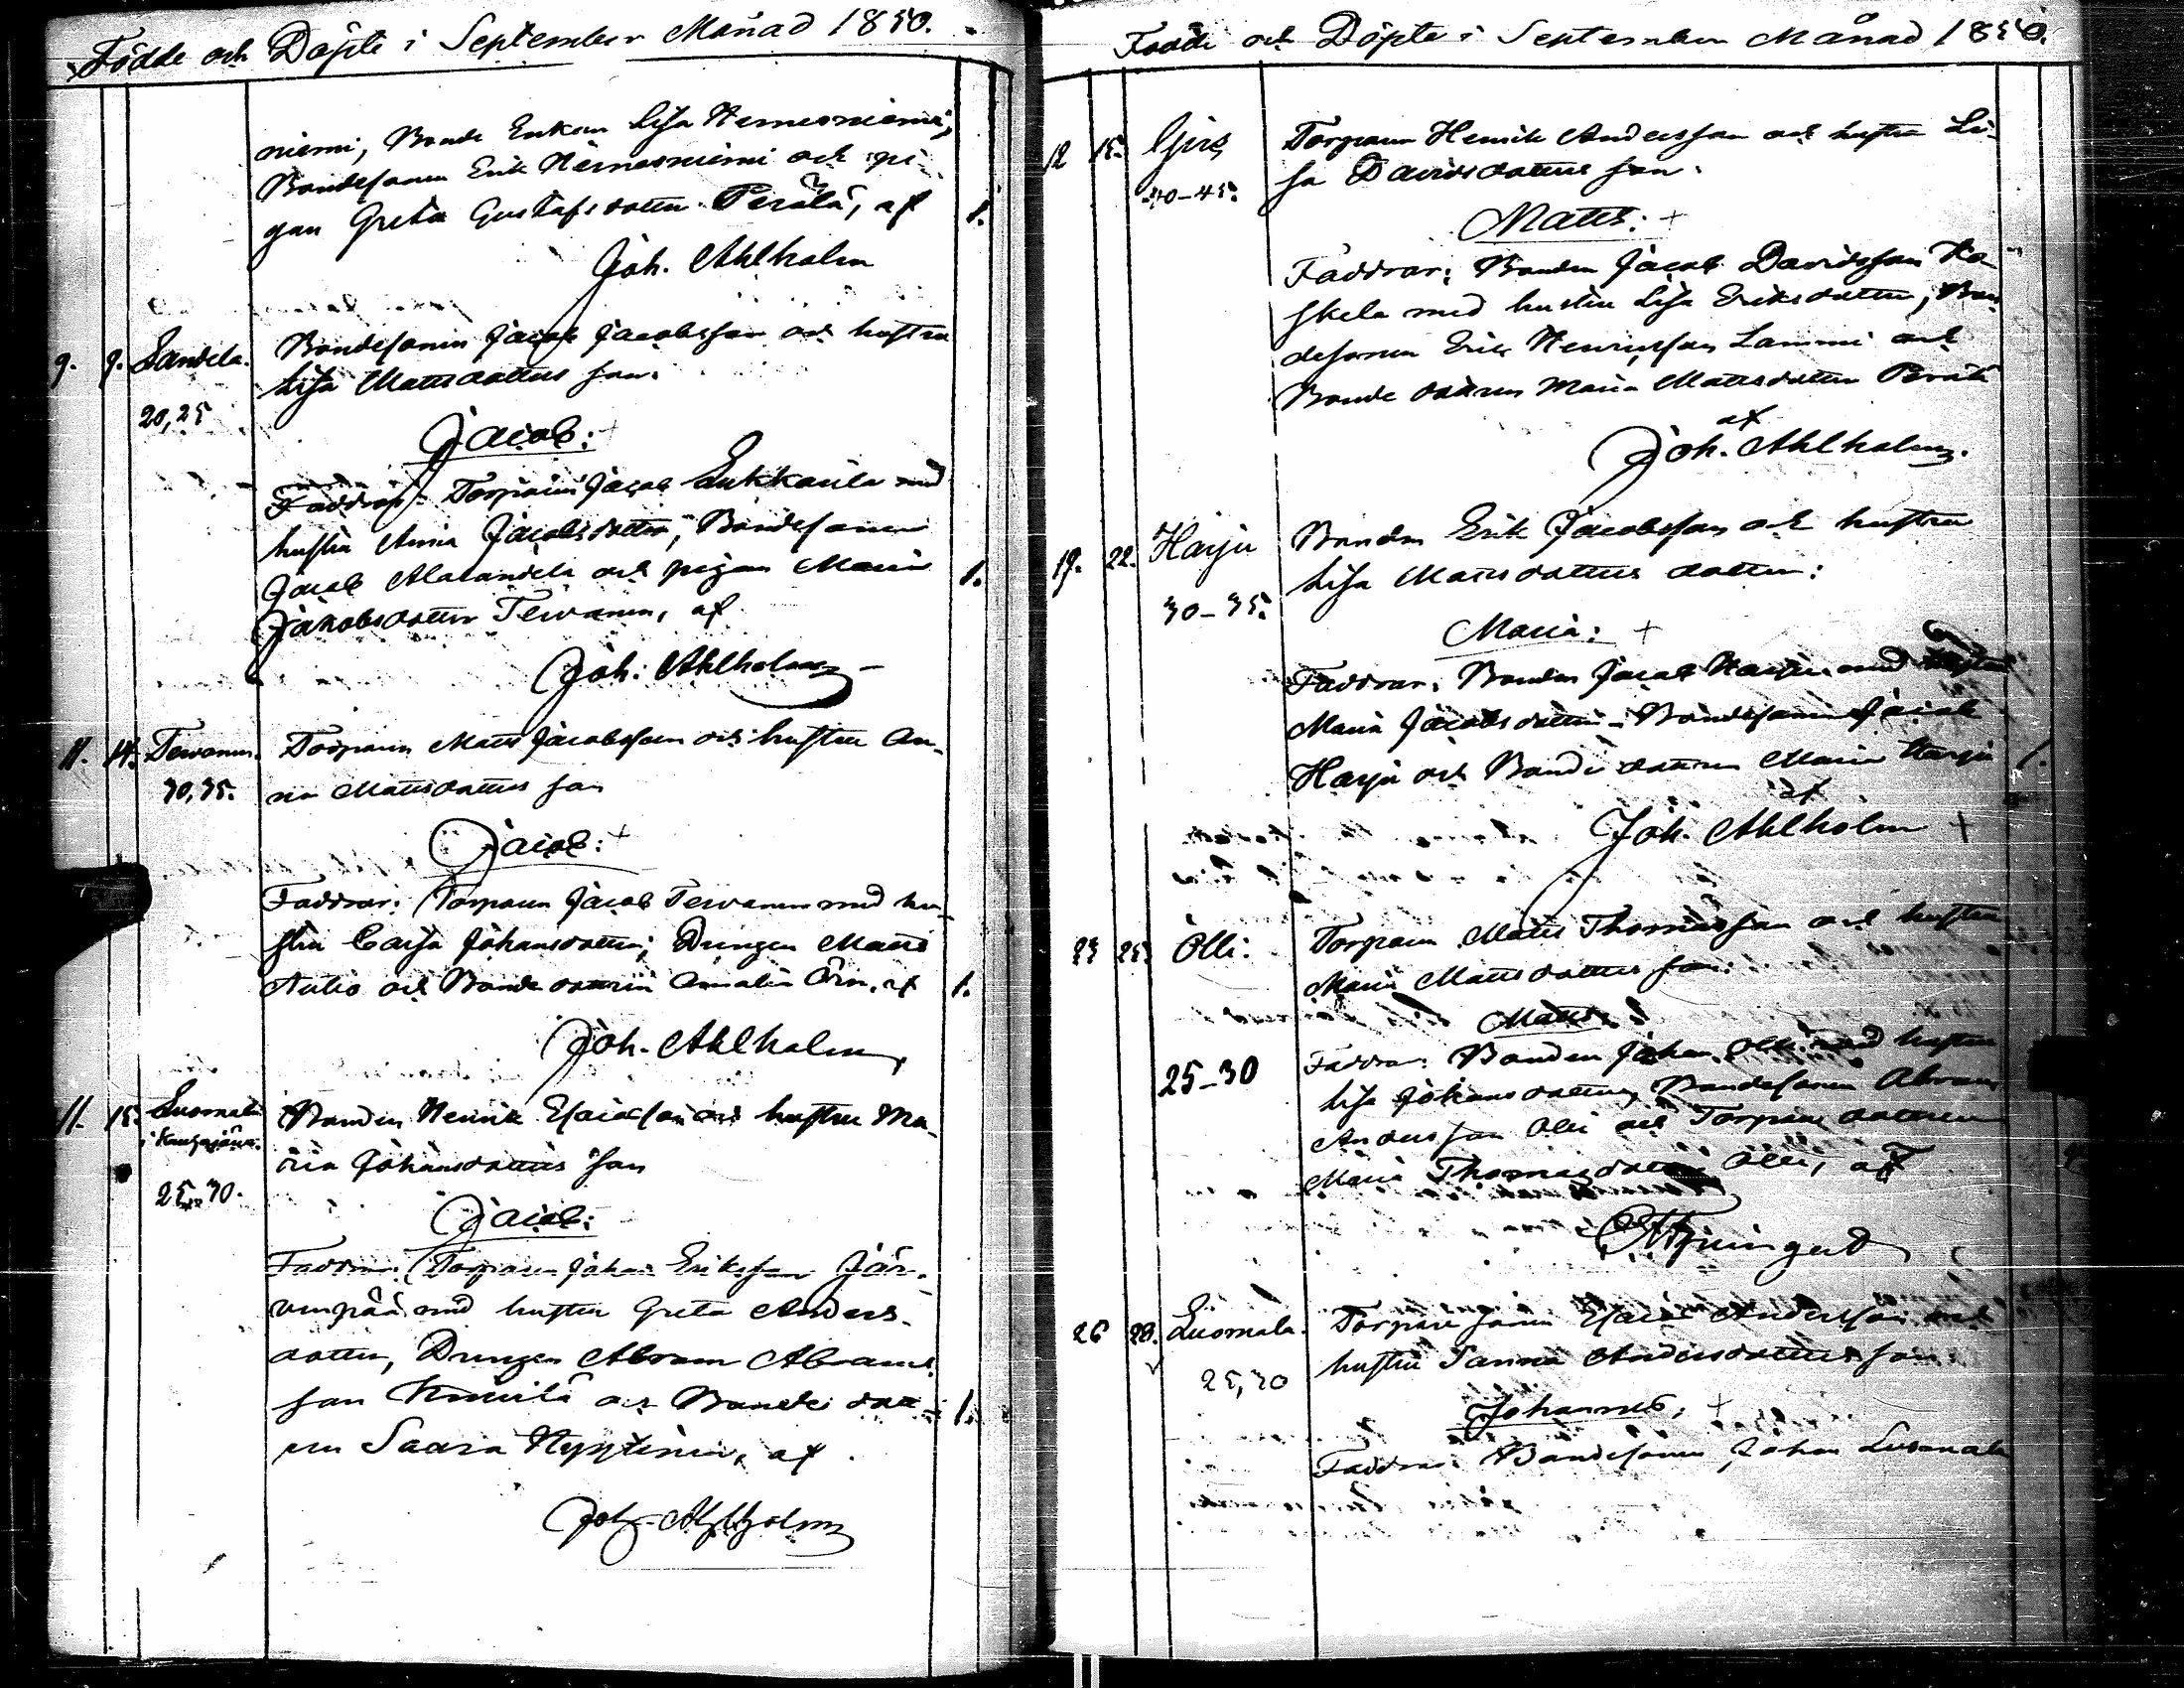 Födde och Döpte i September Månad 1850.
niemi, Bonde Enkan Lisa Hernesniemi,
Bondesonen Erik Hernesniemi och pi-
gan Greta Gustafsdotter Perälä, af 1.
Joh. Ahlholm
9. 9. Sandela. Bondesonen Jacob Jacobsson och hustru
20,25 Lisa Mattsdotters son.
Jacob: +
Faddrar: Torparen Jacob Lukkarila med
hustru Anna Jacobsdotter, Bondesonen
Jacob Alasandela och pigan Maria 1.
Jakobsdotter Tervanen, af
Joh: Ahlholm
11. 14. Tervanen. Torparen Matts Jacobsson och hustru An-
30,35. na Mattsdotters son
Jacob: +
Faddrar: Torparen Jacob Tervanen med hu-
stru Caisa Johansdotter; Drengen Matts
Autio och Bonde dottren Annalis af 1.
Joh. Ahlholm
11. 15. Luomala Bonden Henrik Esaiasson och hustru Ma-
i Kauhajärvi. ria Johansdotters son
25-30.
Jacob:
Faddrar: Torparen Johan Eriksson Jär-
venpää med hustru Greta Anders-
dotter, Drengen Abram Abrams-
son och Bonde dott- 1.
ren Saara af
Joh. Ahlholm
Födde och Döpte i September Månad 1850.
12 15. Torparen Henrik Andersson och hustru Li-
40-45. sa Davidsdotters son.
Matts: +
Faddrar: Bonden Jacob Davidsson Ka-
skela med hustru Lisa Eriksdotter, Bon-
desonen Erik Henriksson Lammi och
Bonde dottren Maria Mattsdotter Perälä
af
Joh. Ahlholm.
19. 22. Harju Bonden Erik Jacobsson och hustru
30-35. Lisa Mattsdotters dotter:
Maria: +
Faddrar: Bonden Jacob Harju med hustru
Maria Jacobsdotter, Bondesonen Jacob
Harju och Bonde dottren Maria Harju 1.
af
Joh. Ahlholm +
23 25. Olli: Torparen Matts Thomasson och hustru
Maria Mattsdotters son:
Matts:
25-30 Faddrar: Bonden Johan Olli med hustru
Lisa Johansdotter, Bondesonen Abram
Andersson Olli och Torpare dottren
Maria Thomasdotter Olli, af
26 29. Luomala. Torpare sonen Esaias Andersson och
25,30 hustru Sanna Andersdotters son:
Johannes: +
Faddrar: Bondesonen Johan Luomala